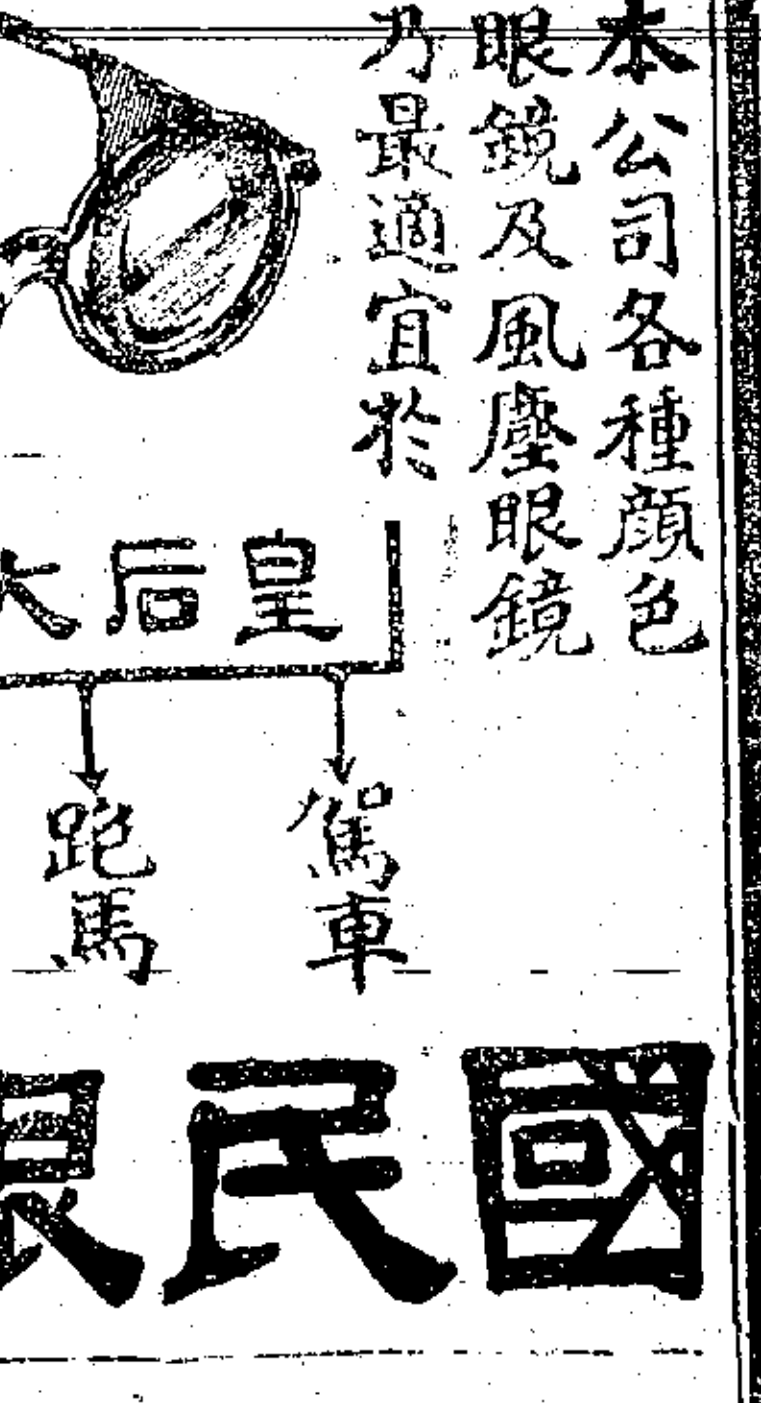 本公司各種顏色
眼鏡及風塵眼鏡
乃最適宜於
皇后大
駕車
跑馬
國民眼